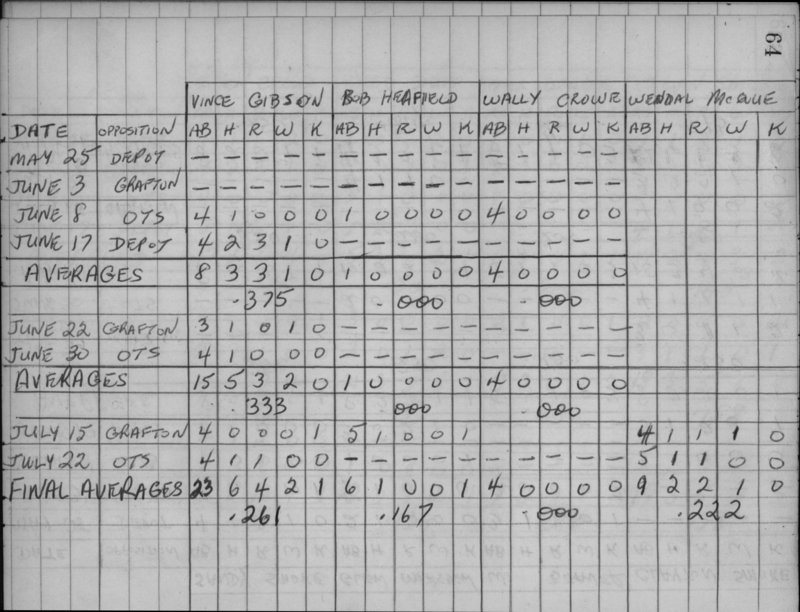 64
VINCE GIBSON BOB HEAFIELD WALLY CROWE WENDAL McRUE
DATE OPPOSITION AB H R W K AB H R W K AB H R W K AB H R W K
MAY 25 DEPOT — — — — — — — — — — — — — — —
JUNE 3 GRAFTON — — — — — — — — — — — — — — —
JUNE 8 OTS 4 1 0 0 0 1 0 0 0 0 4 0 0 0 0
JUNE 17 DEPOT 4 2 3 1 0 — — — — — — — — — —
AVERAGES 8 3 3 1 0 1 0 0 0 0 4 0 0 0 0
.375 .000 .000
JUNE 22 GRAFTON 3 1 0 1 0 — — — — — — — — — —
JUNE 30 OTS 4 1 0 0 0 — — — — — — — — — —
AVERAGES 15 5 3 2 0 1 0 0 0 0 4 0 0 0 0
.333 000 .000
JULY 15 GRAFTON 4 0 0 0 1 5 1 0 0 1 4 1 1 1 0
JULY 22 OTS 4 1 1 0 0 — — — — — — — — — — 5 1 1 0 0
FINAL AVERAGES 23 6 4 2 1 6 1 0 0 1 4 0 0 0 0 9 2 2 1 0
.261 .167 .000 .222